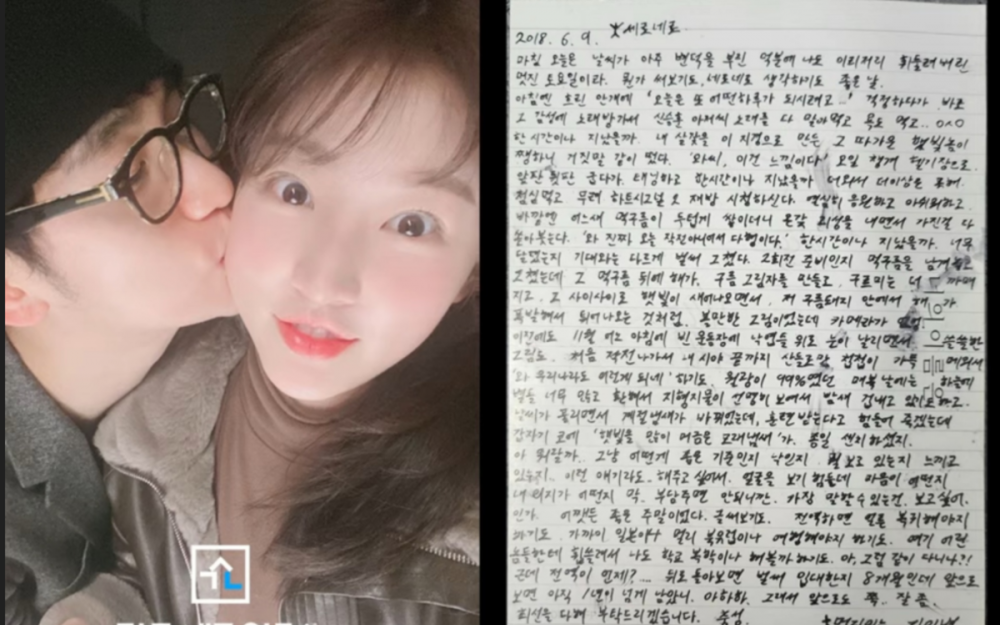 2018. 6. 9. 세로네로
마침 오늘은 날씨가 아주 변덕을 부린 덕분에 나도 이리저리 휘둘려버린
멋진 토요일이라. 뭔가 써보기도, 네로네로 생각하기도 좋은 날.
아침엔 흐린 안개에 '오늘은 또 어떤하루가 되시려고...' 걱정하다가 바로
그 감성에 노래방가서 신승훈 아저씨 노래를 다 말아먹고 욕도 먹고.. ㅇㅅㅇ
한 시간이나 지났을까. 내 살갗을 이 지경으로 만든 그 따가운 햇빛놈이
쨍하니 거짓말 같이 떴다. '와씨, 이건 느낌이다' 오일 챙겨
앞잔 뒷판 굽다가. 태닝하고 한시간이나 지났을까 더워서 더이상은 못해.
점심먹고 무려 하트시그널 2 재방 시청하신다. 열심히 응원하고 아쉬워하고.
바깥엔 어느새 먹구름이 두텁게 쌓이더니 온갖 괴성을 내면서 가진걸 다
쏟아붓는다. '와 진짜 오늘 작전아니어서 다행이다.' 한시간이나 지났을까. 너무
달랬는지 기대와는 다르게 벌써 그쳤다. 2회전 준비인지 먹구름을 남겨놓고
그쳤는데 그 먹구름 뒤에 해가. 구름 그림자를 만들고, 구르미는 더 까매
지고. 그 사이사이로 햇빛이 새어나오면서, 저 구름돼지 안에서 해 가
폭발해서 튀어나오는 것처럼. 볼만한 그림이었는데 카메라가 없엉
이런에도 11월 어느 아침에 빈 운동장에 낙엽들 위로 눈이 날리면서 쓸쓸한
그림도. 처음 작전나가서 내 시야 끝까지 산들로만 첩첩이 가득 메워서
'와 우리나라도 이런게 되네' 하기도. 월광이 99%였던 매복날에는 하늘에
별들 너무 많고 환해서 지형지물이 선명히 보여서 밤새 겁내고 있기도하고.
날씨가 풀리면서 계절냄새가 바뀌었는데, 훈련 받는다고 힘들어 죽겠는데
갑자기 코에 '햇빛을 많이 머금은 모래냄새'가. 몽밀 센치하셨지.
아 뭐랄까.. 그냥 어떤게 좋은 기준인지 낙인지 뭘 보고 있는지 느끼고
있는지. 이런 얘기라도 해주고 싶어서. 얼굴을 보기 힘든데 마음이 어떤지
내 의지가 어떤지 막 부담주면 안되니깐. 가장 말할 수 있는건, 보고싶어.
인가. 어쨌든 좋은 주말이었다. 글써보기도. 전역하면 얼른 복귀해야지
하기도. 가까이 일본이나 멀리 북유럽이나 여행해야지 하기도. 얘기 어린
놈들한테 휩쓸려서 나도 학교 복학이나 해볼까 하기도. 아, 그럼 같이 다니나?!
근데 전역이 언제?.... 뒤로 돌아보면 벌써 입대한지 8개월인데 앞으로
보면 아직 1년이 넘게 남았니. 아하하. 그래서 앞으로도 쭉. 잘 좀.
최선을 다해 부탁드리겠습니다. 충성.